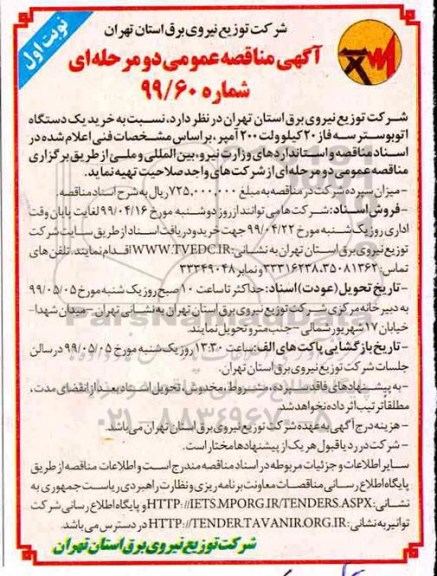 نوبت اول
شرکت توزیع نیروی برق استان تهران
آگهی مناقصه عمومی دو مرحله‌ای
شماره ۹۹/۶۰
شرکت توزیع نیروی برق استان تهران در نظر دارد، نسبت به خرید یک دستگاه
اتوبوستر سه فاز ۲۰ کیلوولت ۲۰۰ آمپر، بر اساس مشخصات فنی اعلام شده در
اسناد مناقصه و استانداردهای وزارت نیرو، بین‌المللی و ملی از طریق برگزاری
مناقصه عمومی دو مرحله‌ای از شرکت‌های واجد صلاحیت تهیه نماید.
- میزان سپرده شرکت در مناقصه به مبلغ ۷۲۵,۰۰۰,۰۰۰ ریال به شرح اسناد مناقصه.
- فروش اسناد: شرکت‌ها می‌توانند از روز دوشنبه مورخ ۹۹/۰۴/۱۶ لغایت پایان وقت
اداری روز یک شنبه مورخ ۹۹/۰۴/۲۲ جهت خرید و دریافت اسناد از طریق سایت شرکت
توزیع نیروی برق استان تهران به نشانی: WWW.TVEDC.IR اقدام نمایند. تلفن های
تماس: ۳۵۰۸۱۳۶۲، ۳۳۳۱۶۲۳۸ و نمابر ۳۳۳۴۹۰۴۸
- تاریخ تحویل (عودت) اسناد: حداکثر تا ساعت ۱۰ صبح روز یک شنبه مورخ ۹۹/۰۵/۰۵
به دبیرخانه مرکزی شرکت توزیع نیروی برق استان تهران به نشانی تهران - میدان شهدا -
خیابان ۱۷ شهریور شمالی - جنب مترو تحویل نمایند.
- تاریخ بازگشایی پاکت های الف: ساعت ۱۳:۳۰ روز یک شنبه مورخ ۹۹/۰۵/۰۵ در سالن
جلسات شرکت توزیع نیروی برق استان تهران.
- به پیشنهادهای فاقد سپرده، مشروط، مخدوش، تحویل اسناد بعد از انقضای مدت،
مطلقاً ترتیب اثر داده نخواهد شد.
- هزینه درج آگهی به عهده شرکت توزیع نیروی برق استان تهران می‌باشد.
- شرکت در رد یا قبول هر یک از پیشنهادها مختار است.
سایر اطلاعات و جزئیات مربوطه در اسناد مناقصه مندرج است و اطلاعات مناقصه از طریق
پایگاه اطلاع رسانی مناقصات معاونت برنامه ریزی و نظارت راهبردی ریاست جمهوری به
نشانی: HTTP://IETS.MPORG.IR/TENDERS.ASPX و پایگاه اطلاع رسانی شرکت
توانیر به نشانی: HTTP://TENDER.TAVANIR.ORG.IR در دسترس می باشد.
شرکت توزیع نیروی برق استان تهران